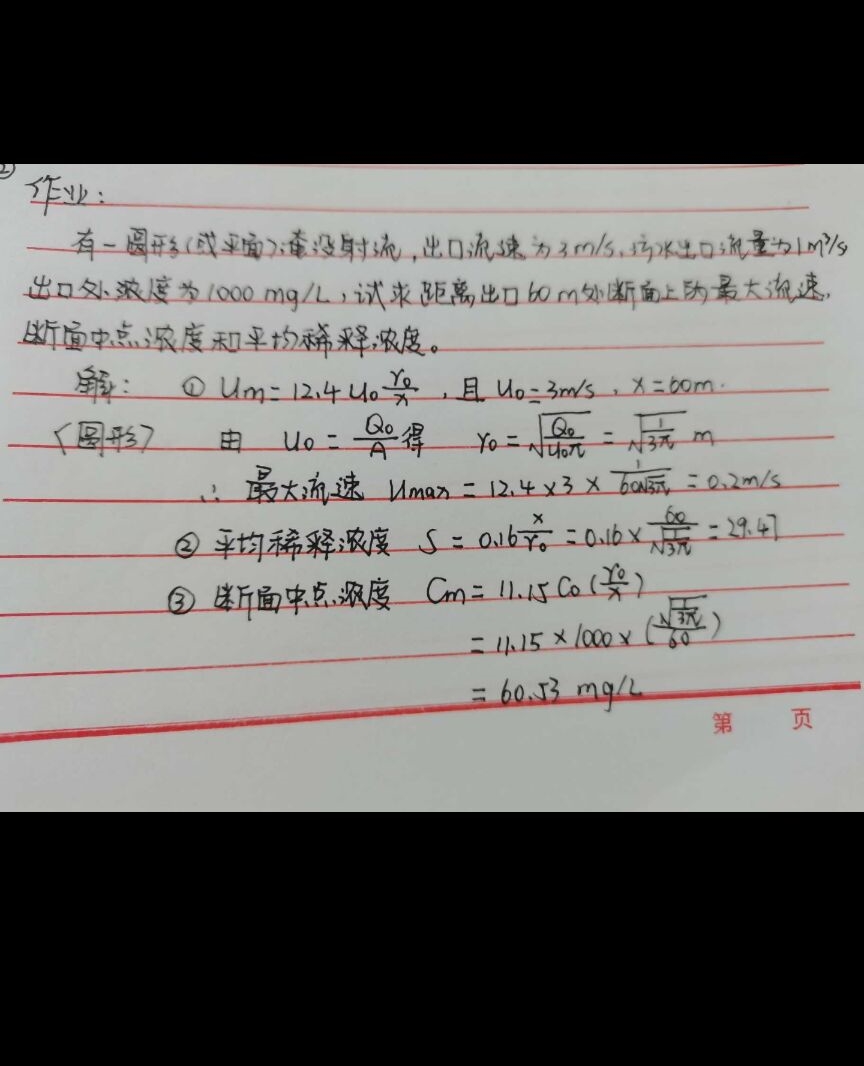 ②
作业:
有一圆形(或平面)淹没射流,出口流速为3m/s,污水出口流量为1m³/s
出口处浓度为1000 mg/L,试求距离出口60m处断面上的最大流速,
断面中点浓度和平均稀释浓度。
解: ① Um = 12.4 U0 r0/x , 且 U0=3m/s , x=60m.
<圆形> 由 U0 = Q0/A 得 r0 = √(Q0/U0π) = √(1/3π) m
∴ 最大流速 Umax = 12.4 × 3 × 1/(60√3π) = 0.2m/s
② 平均稀释浓度 S = 0.16 x/r0 = 0.16 × 60/√(1/3π) = 29.47
③ 断面中点浓度 Cm = 11.15 C0 (r0/x)
= 11.15 × 1000 × (√(1/3π)/60)
= 60.53 mg/L
第 页